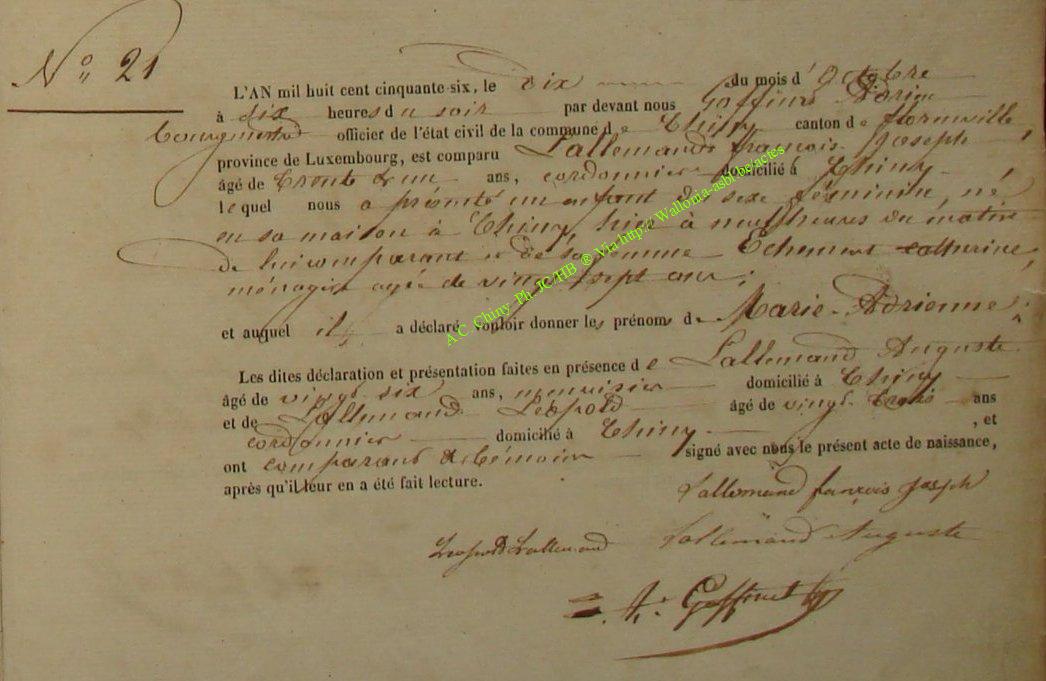 N° 21
L'AN mil huit cent cinquante-six, le dix du mois d'Octobre
à dix heures du soir par devant nous Goffinet Adrien
bourgmestre officier de l'état civil de la commune de Chiny canton de florenville
province de Luxembourg, est comparu Lallemand françois Joseph
âgé de trente & un ans, cordonnier domicilié à Chiny
lequel nous a présenté un enfant de sexe féminin, né
en sa maison à Chiny, hier à neuf heures du matin
de lui comparant et de sa femme Echement catherine,
ménagère agée de vingt sept ans;
et auquel il a déclaré vouloir donner les prénoms de Marie-Adrienne
Les dites déclaration et présentation faites en présence de Lallemand Auguste
âgé de vingt six ans, menuisier domicilié à Chiny
et de Lallemand Léopold âgé de vingt-trois ans
cordonnier domicilié à Chiny , et
ont comparant & témoins signé avec nous le présent acte de naissance,
après qu'il leur en a été fait lecture.
Lallemand françois Joseph
Léopold Lallemand Lallemand Auguste
A. Goffinet
AC Chiny Ph JC/HB ® Via http:// Wallonia-asbl.be/actes